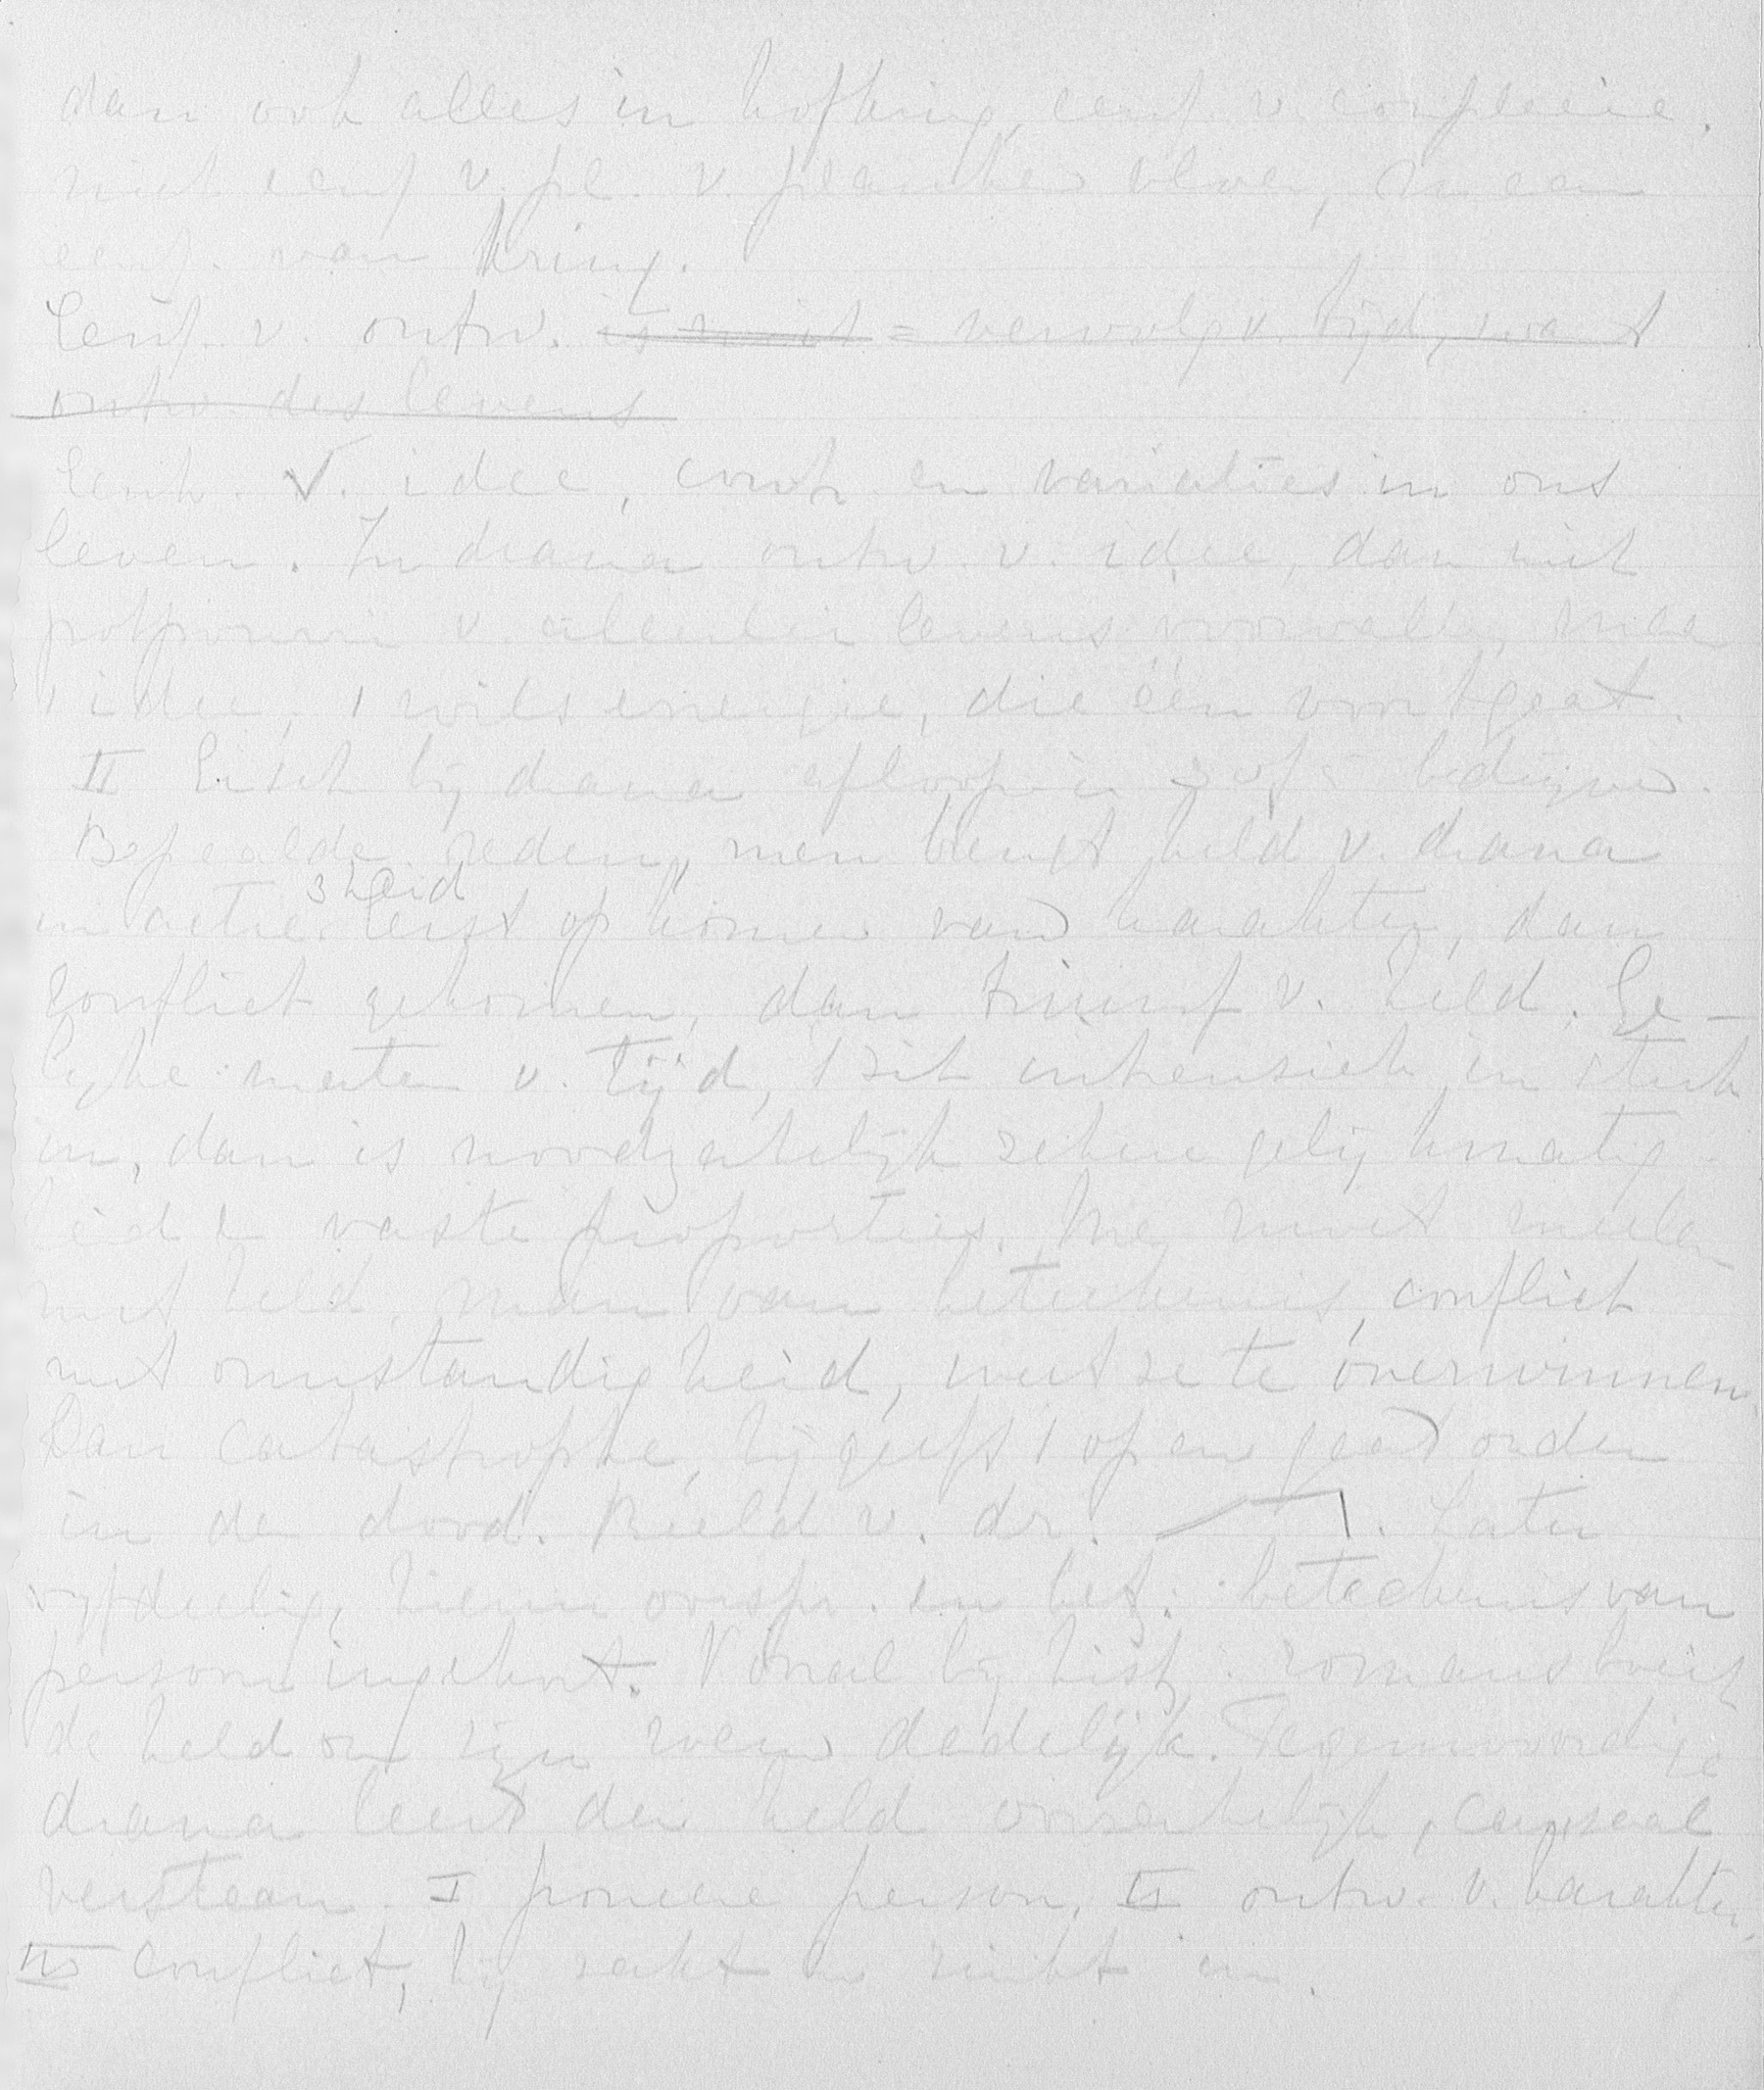 dan ook alles in hofkring, eenh. v. conflexie,
niet eenh v. pl. v. planken vloer, maar
eenh. van kring.
Eenh. v. ontw. is niet = vervolg v. tijd, want
ontw. des levens
Eenh. v. idee, contr. en variaties in ons
leven. In drama ontw. v. idee, dan niet
potpourri v. allerlei levensvoorvallen, maar
1 idee, 1 wilsenergie, die één voortgaat.
II Eisch bij drama afloop in 3 of 5 bedrijven.
Bepaalde reden, men brengt held v. drama
in actie. 3heid Eerst opkomen van karakter, dan
conflict gekomen, dan triumf v. held. Ge-
lijke maten v. tijd, 1 zit intensief in stuk
in, dan is noodzakelijk zekere gelijkmatig-
heid & vaste proporties. Me moet
met held, man van beteekenis, conflict
met omstandigheid, weet ze te overwinnen,
Dan catastrophe, hij geeft 1 op en gaat onder
in de dood. Beeld v. dr. Later
vijfdeelig, hierin oorspr. en bet. beteekenis van
persoon ingekort. Vooral bij hist. romans
de held om zijn dadelijk. Tegenwoordige
drama leert den held oorzakelijk, causaal
verstaan. I primaire person, II ontw. v. karakter,
III conflict, hij zakt en zinkt in.